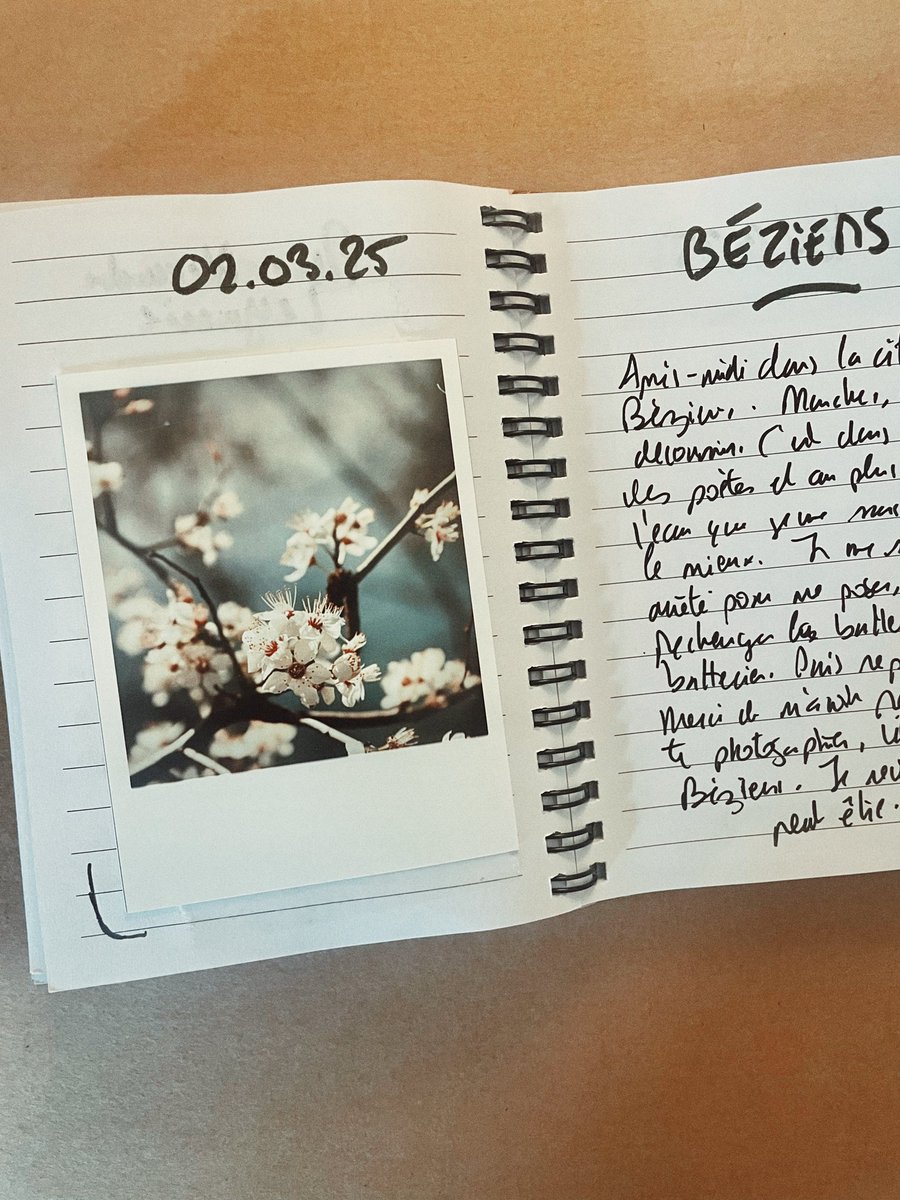 02.03.25
BÉZIERS
Après-midi dans la cit
Béziers. Marcher,
découvrir. C'est dans
des poètes et au plus
l'eau que je me
le mieux. Je me
arrêté pour me poser,
Recharger les batte
batteries. Puis rep
Merci de m'avoir
te photographier,
Béziers. Je rev
peut être.